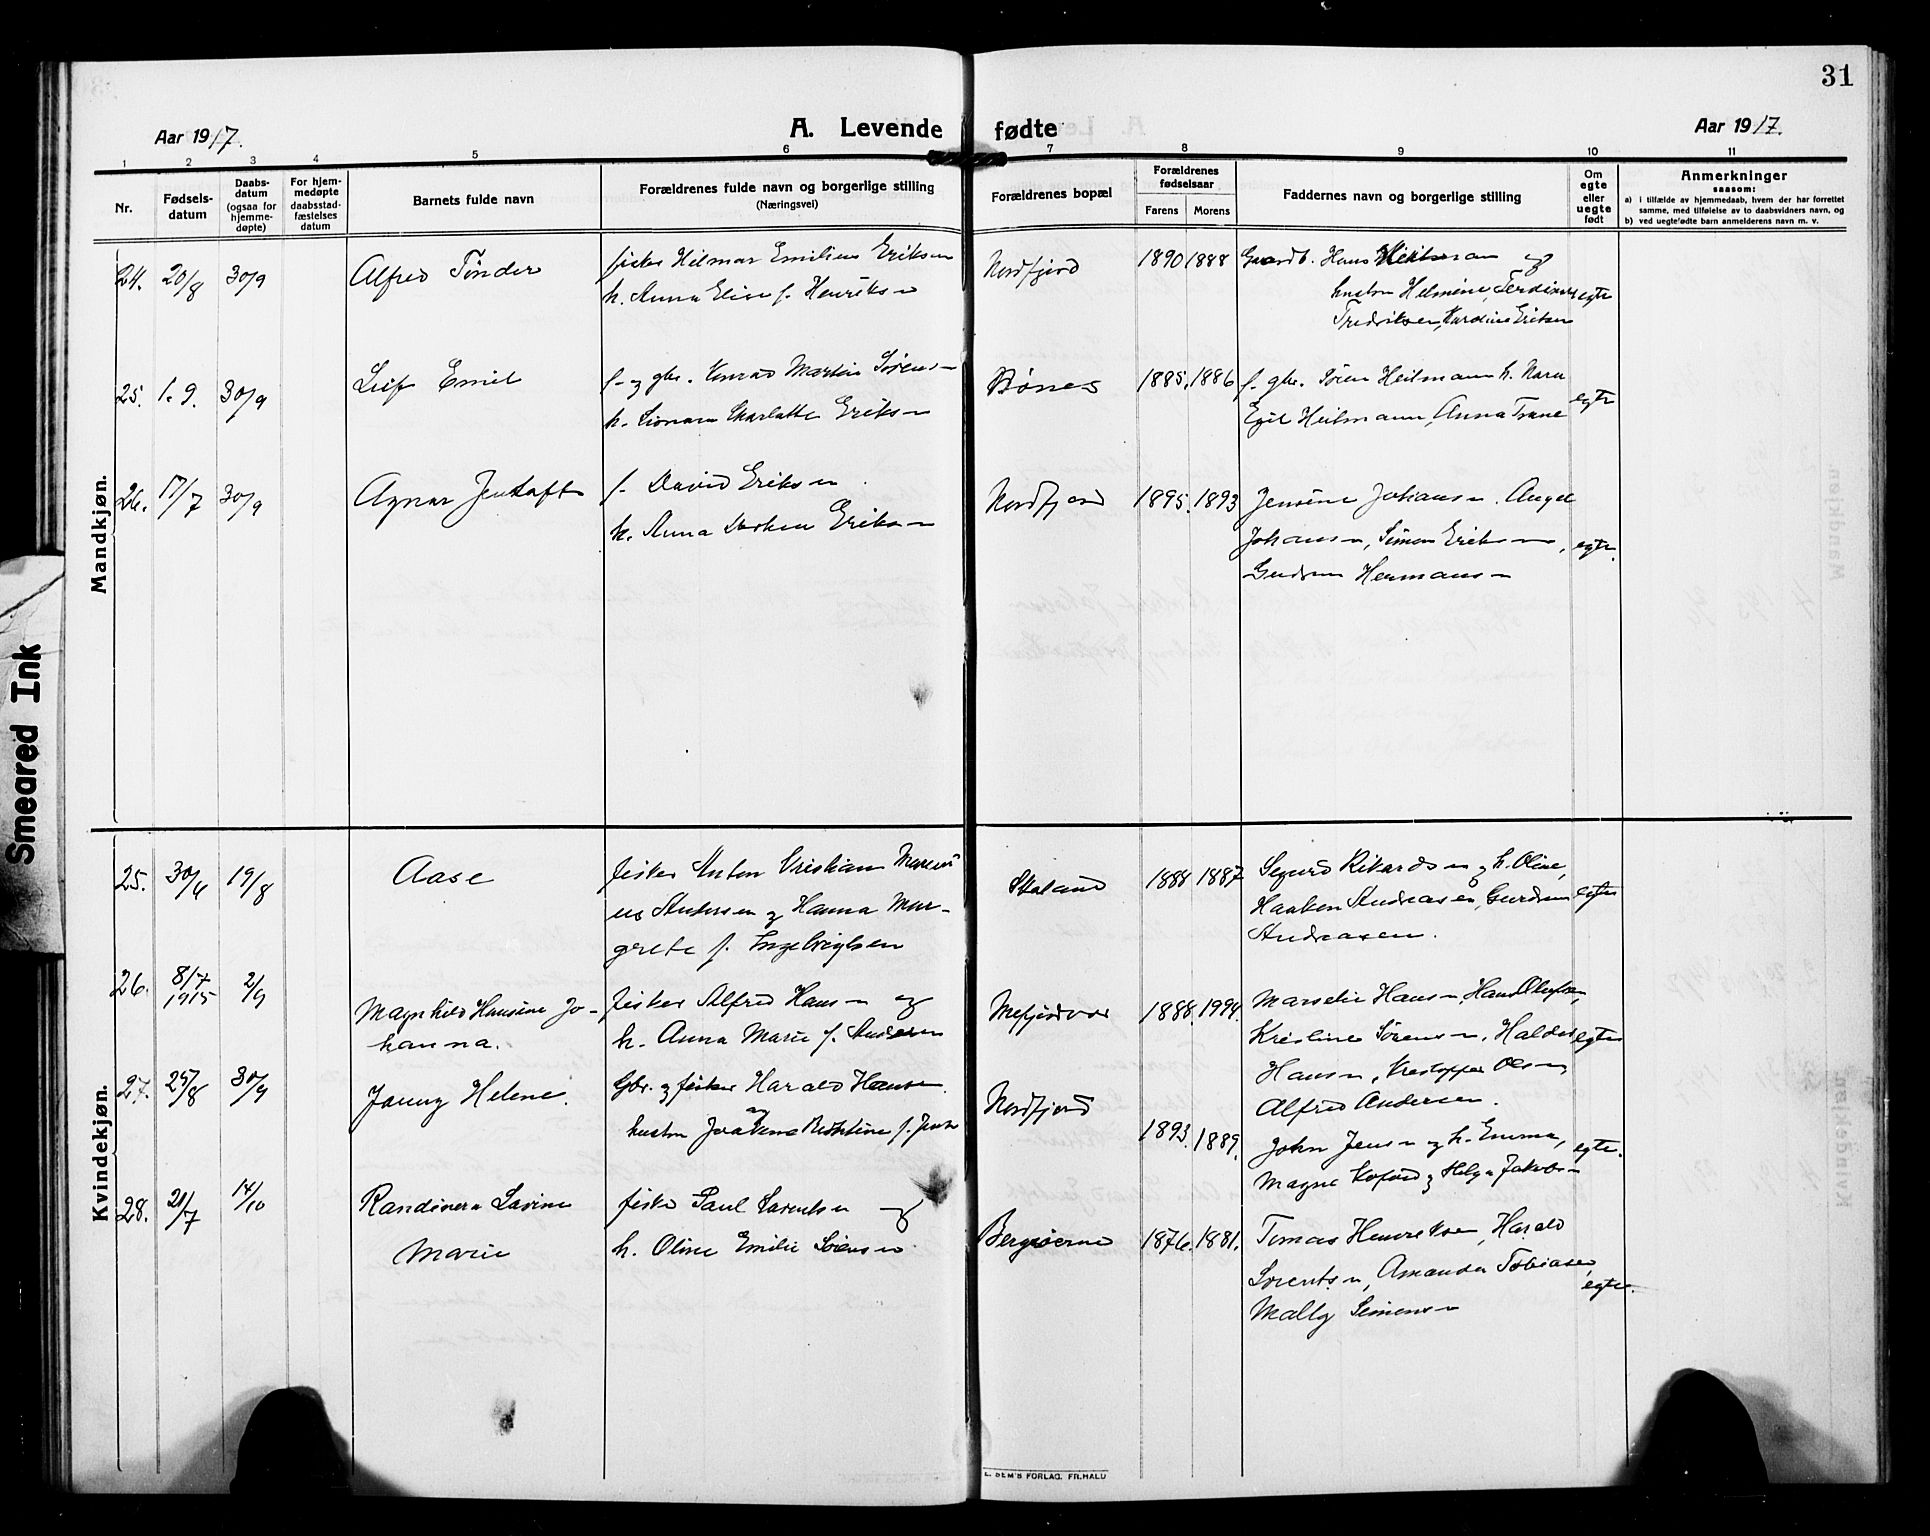 31
Aar 1917.
A. Levende fødte
Aar 1917.
1 2 3 4 5 6 7 8 9 10 11
Nr.
Fødsels-
datum
Daabs-
datum
(ogsaa for
hjemme-
døpte)
For hjem-
medøpte
daabsstad-
fæstelses
datum
Barnets fulde navn
Forældrenes fulde navn og borgerlige stilling
(Næringsvei)
Forældrenes bopæl
Forældrenes
fødselsaar
Farens Morens
Faddernes navn og borgerlige stilling
Om
egte
eller
uegte
født
Anmerkninger
saasom:
a) i tilfælde av hjemmedaab, hvem der har forrettet
samme, med tilføielse av to daabsvidners navn, og
b) ved uegtefødte barn anmelderens navn m. v.
Mandkjøn.
24. 20/8 30/9
Alfred Tønder
fisker Hilmar Emilius Eriksen
h. Anna Elise f. Henriksen
Nordfjord
1890 1888
Gaardb. Hans Heitmann og
hustru Helmine, Ferdinand
Fredriksen, Kardine Eriksen
egte
25. 1.9. 30/9
Leif Emil
f. og gbr. Konrad Martin Sørensen
h. Leonara Charlotte Eriksen
Bønes
1885. 1886
f. gbr. Søren Heitmann h. Nara
Egil Heitmann, Anna Trane
egte
26. 17/7 30/9
Agnar Jentoft
f. David Eriksen
h. Anna Dorthea Eriksen
Nordfjord
1895. 1893
Jensine Johansen. Angel
Johansen, Simon Eriksen,
Gudrun Hermansen
egte.
Kvindekjøn.
25. 30/4 19/8
Aase
fisker Anton Kristian Mareni
us Andersen og Hanna Mar-
grete f. Ingebrigtsen
Skaland
1888 1887
Sigurd Rikardsen og h. Oline,
Haakon Andreasen, Gurdrun
Andreasen.
egte
26. 8/7 1915 2/9
Magnhild Hansine Jo-
hanna.
fisker Alfred Hansen og
h. Anna Marie f. Andersen
Mefjordvær
1888. 1994.
Marselie Hansen, Hans Olufsen,
Kristine Sørensen, Haldis
Hansen, Kristoffer Olsen
Alfred Andersen.
egte
27. 25/8 30/9
Janny Helene.
Gbr. og fisker Harald Hansen
hustru Joakime Kristine f. Jensen
Nordfjord
1893. 1889.
John Jensen og h. Emma,
Magne Kofoed og Helga Jakobsen
egte.
28. 21/7 14/10
Randinera Lavine
Marie
fisker Paul Lorentsen og
h. Oline Emilie Sørensen.
Bergsøerne
1876. 1881.
Tomas Henriksen, Harald
Lorentsen, Amanda Tobiasen,
Mally Simonsen
egte.
E. SEM'S FORLAG. FR.HALD
Smeared Ink